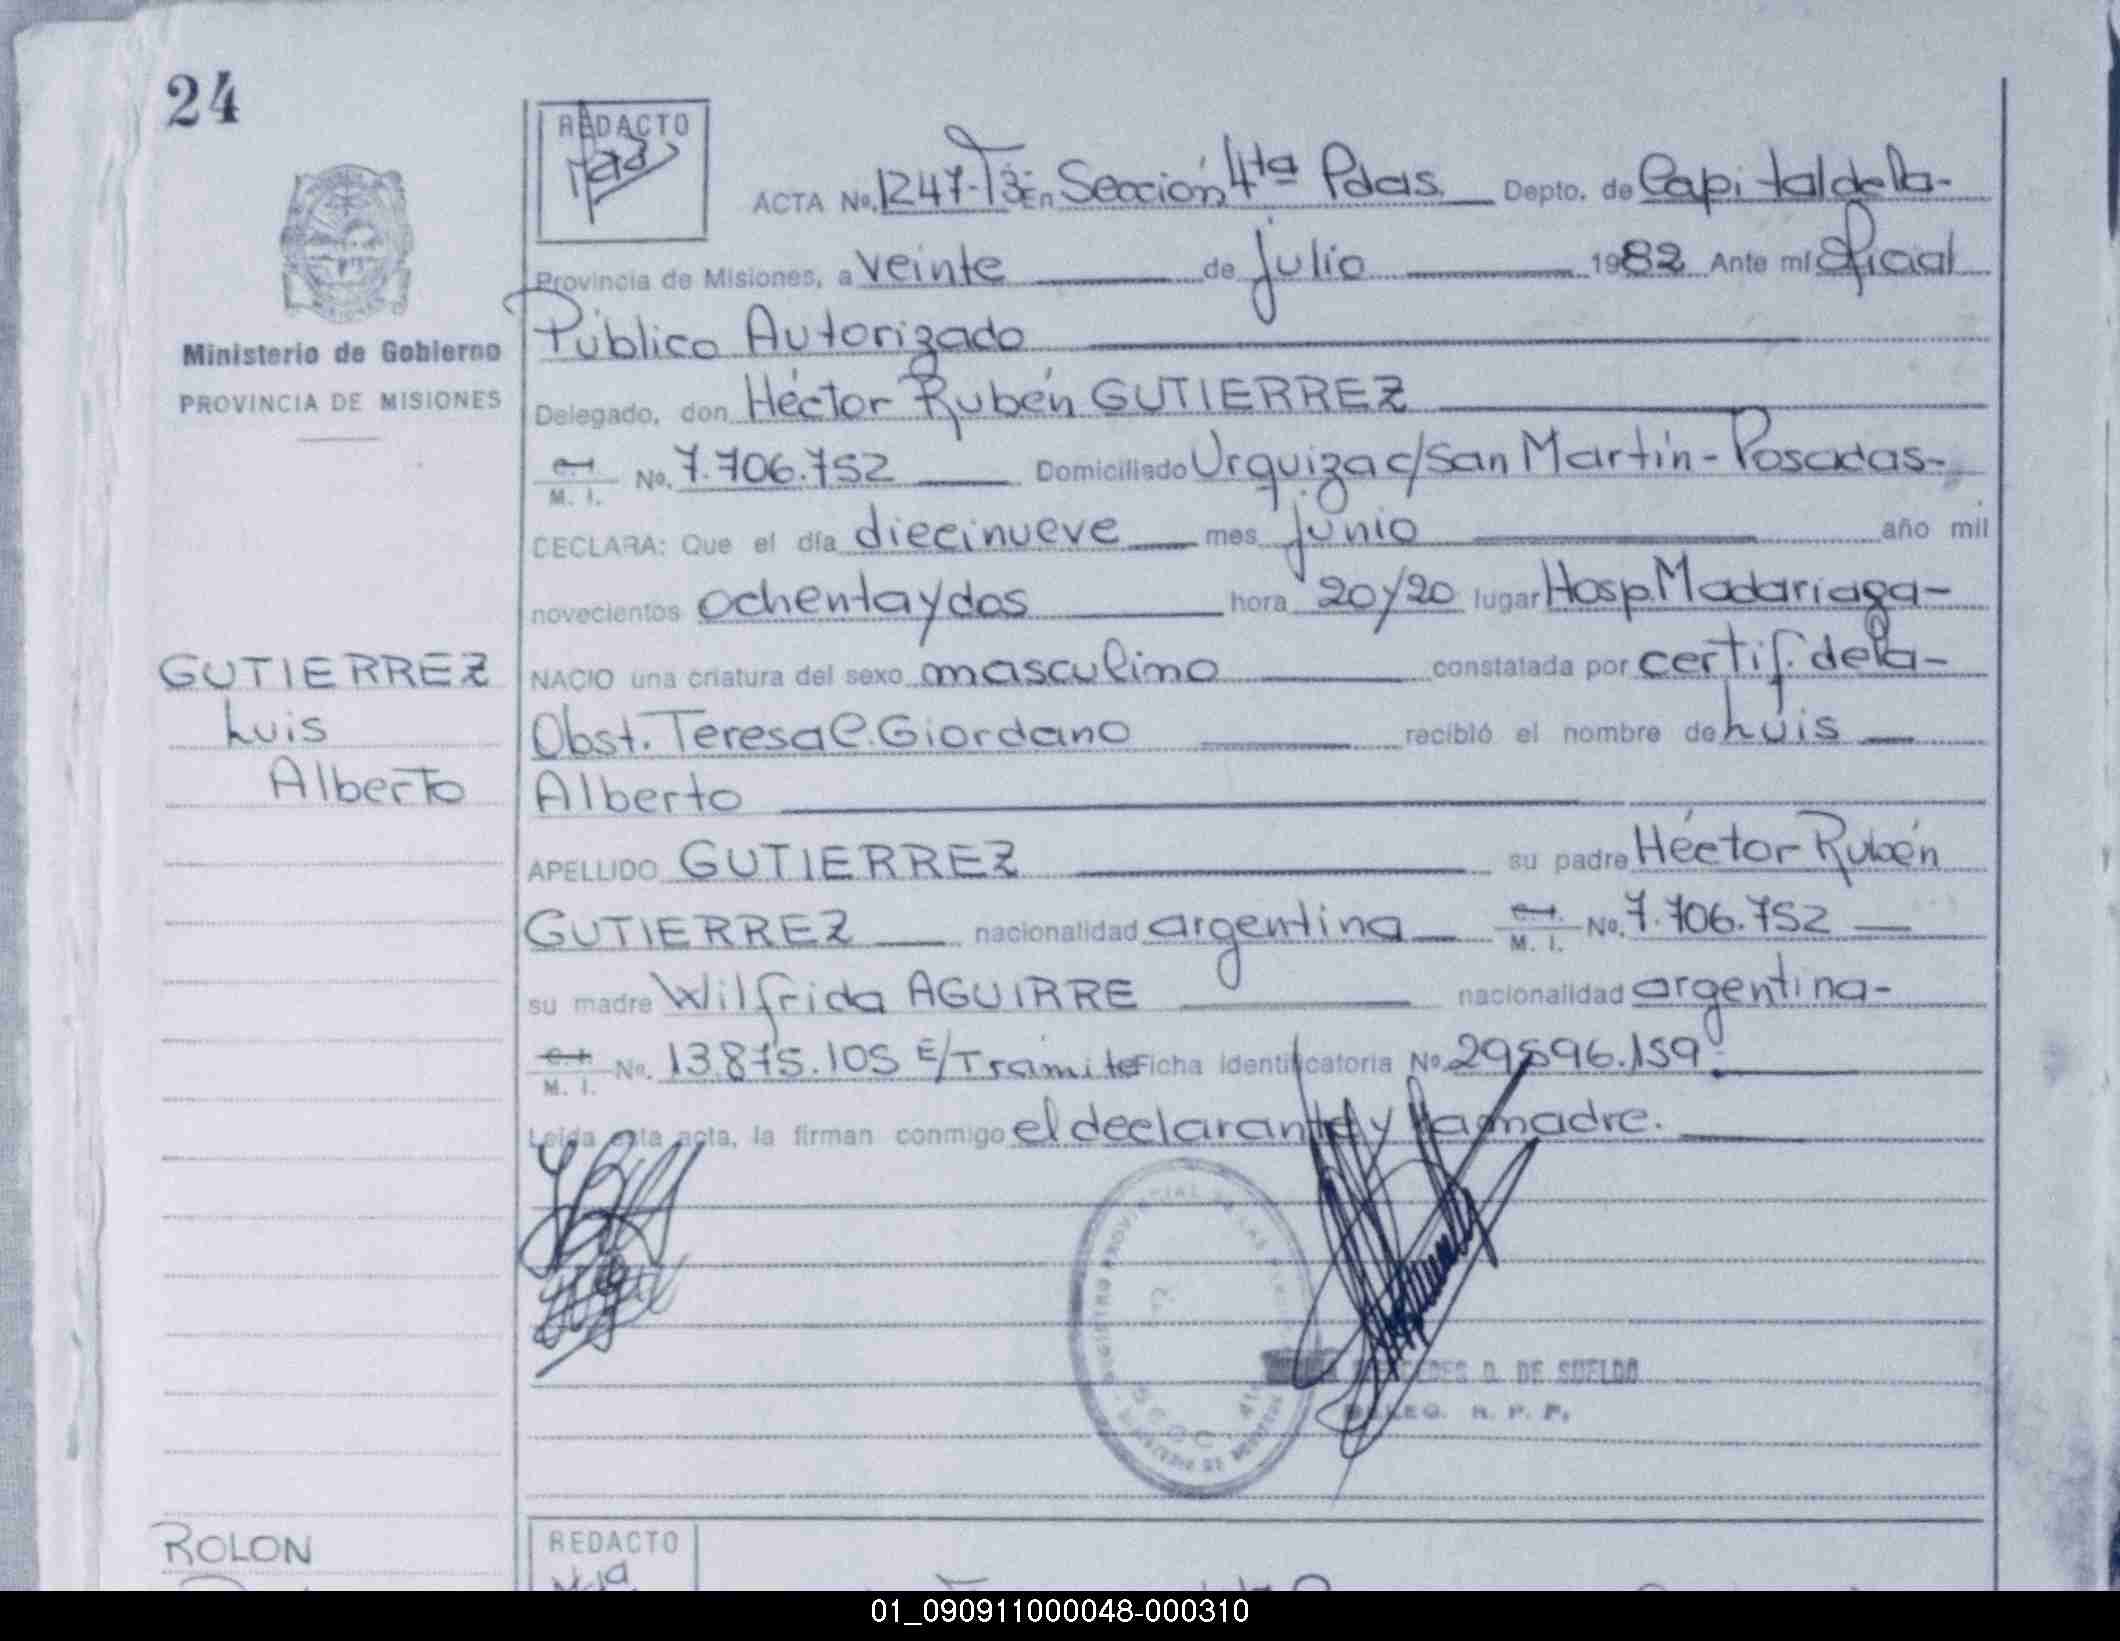 24
REDACTO
ACTA No. 1247-T3 En Sección 4ta Pdas. Depto. de Capital de la-
Provincia de Misiones, a veinte de julio 1982 Ante mí Oficial
Público Autorizado
Ministerio de Gobierno
PROVINCIA DE MISIONES
Delegado, don Héctor Rubén GUTIERREZ
M. I. No. 7.706.752 Domiciliado Urquiza c/San Martín-Posadas-
DECLARA: Que el día diecinueve mes junio año mil
novecientos ochenta y dos hora 20y20 lugar Hosp. Madariaga-
GUTIERREZ
Luis
Alberto
NACIO una criatura del sexo masculino constatada por certif. de la-
Obst. Teresa C. Giordano recibió el nombre de Luis
Alberto
APELLIDO GUTIERREZ su padre Héctor Rubén
GUTIERREZ nacionalidad argentina M. I. No. 7.706.752
su madre Wilfrida AGUIRRE nacionalidad argentina-
C.I. M. I. No. 13.875.105 E/Trámite Ficha identificatoria No. 29.596.159.
Leida esta acta, la firman conmigo el declarante y la madre.
MERCEDES D. DE SUELDO
DELEG. R. P. P.
ROLON
REDACTO
01_090911000048-000310